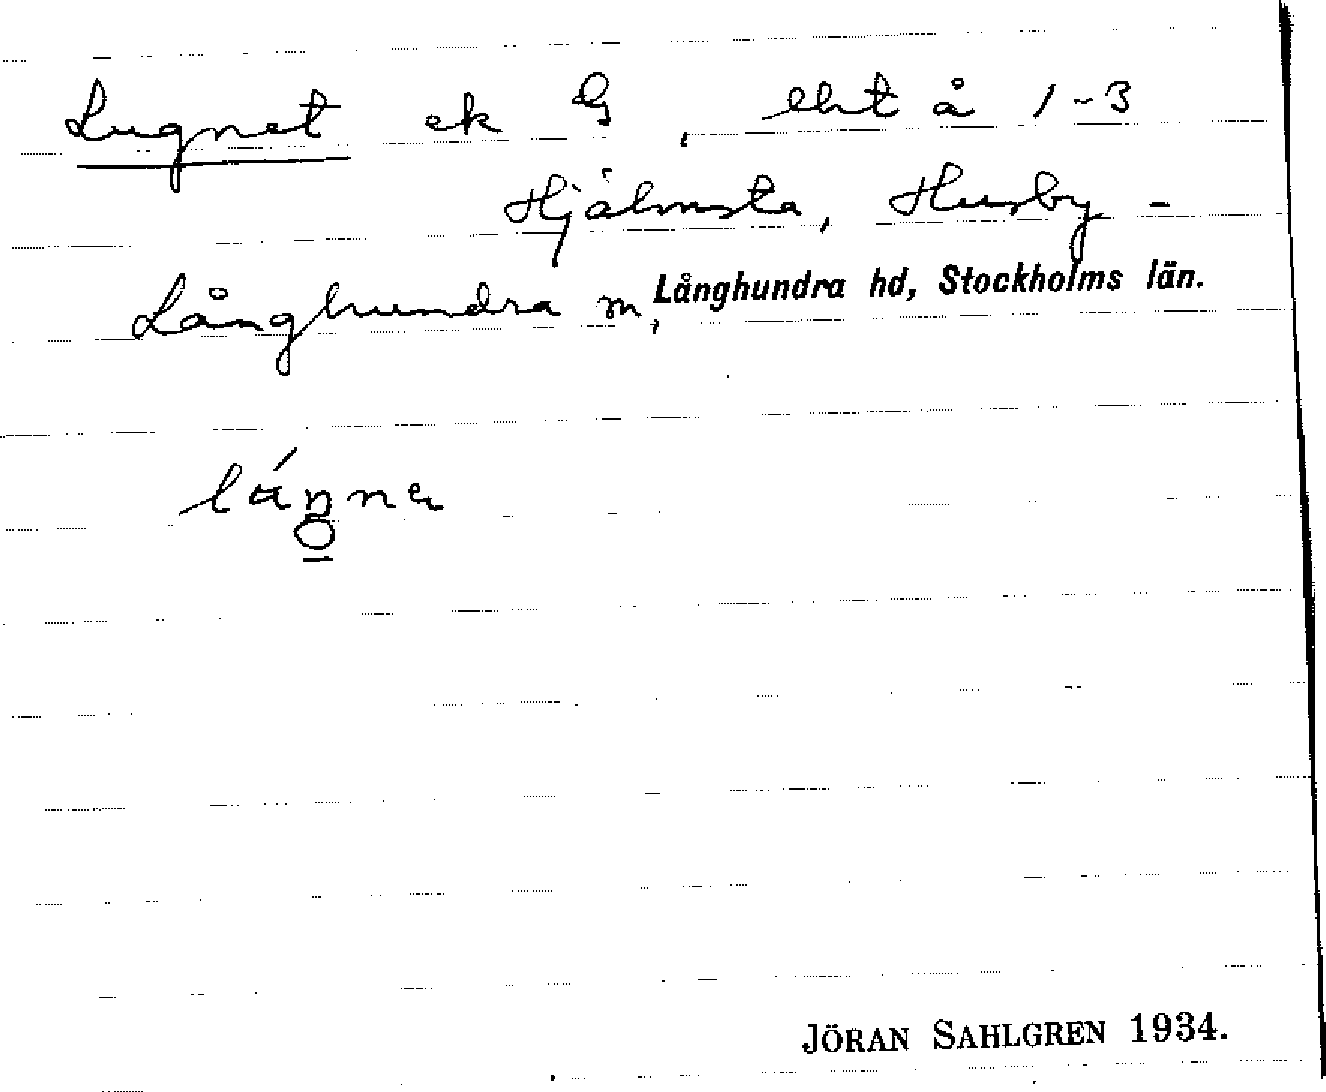 Lugnet ek G, lht å 1-3
Hjälmsta, Husby-
Långhundra sn, Långhundra hd, Stockholms län.
JÖRAN SAHLGREN 1934.